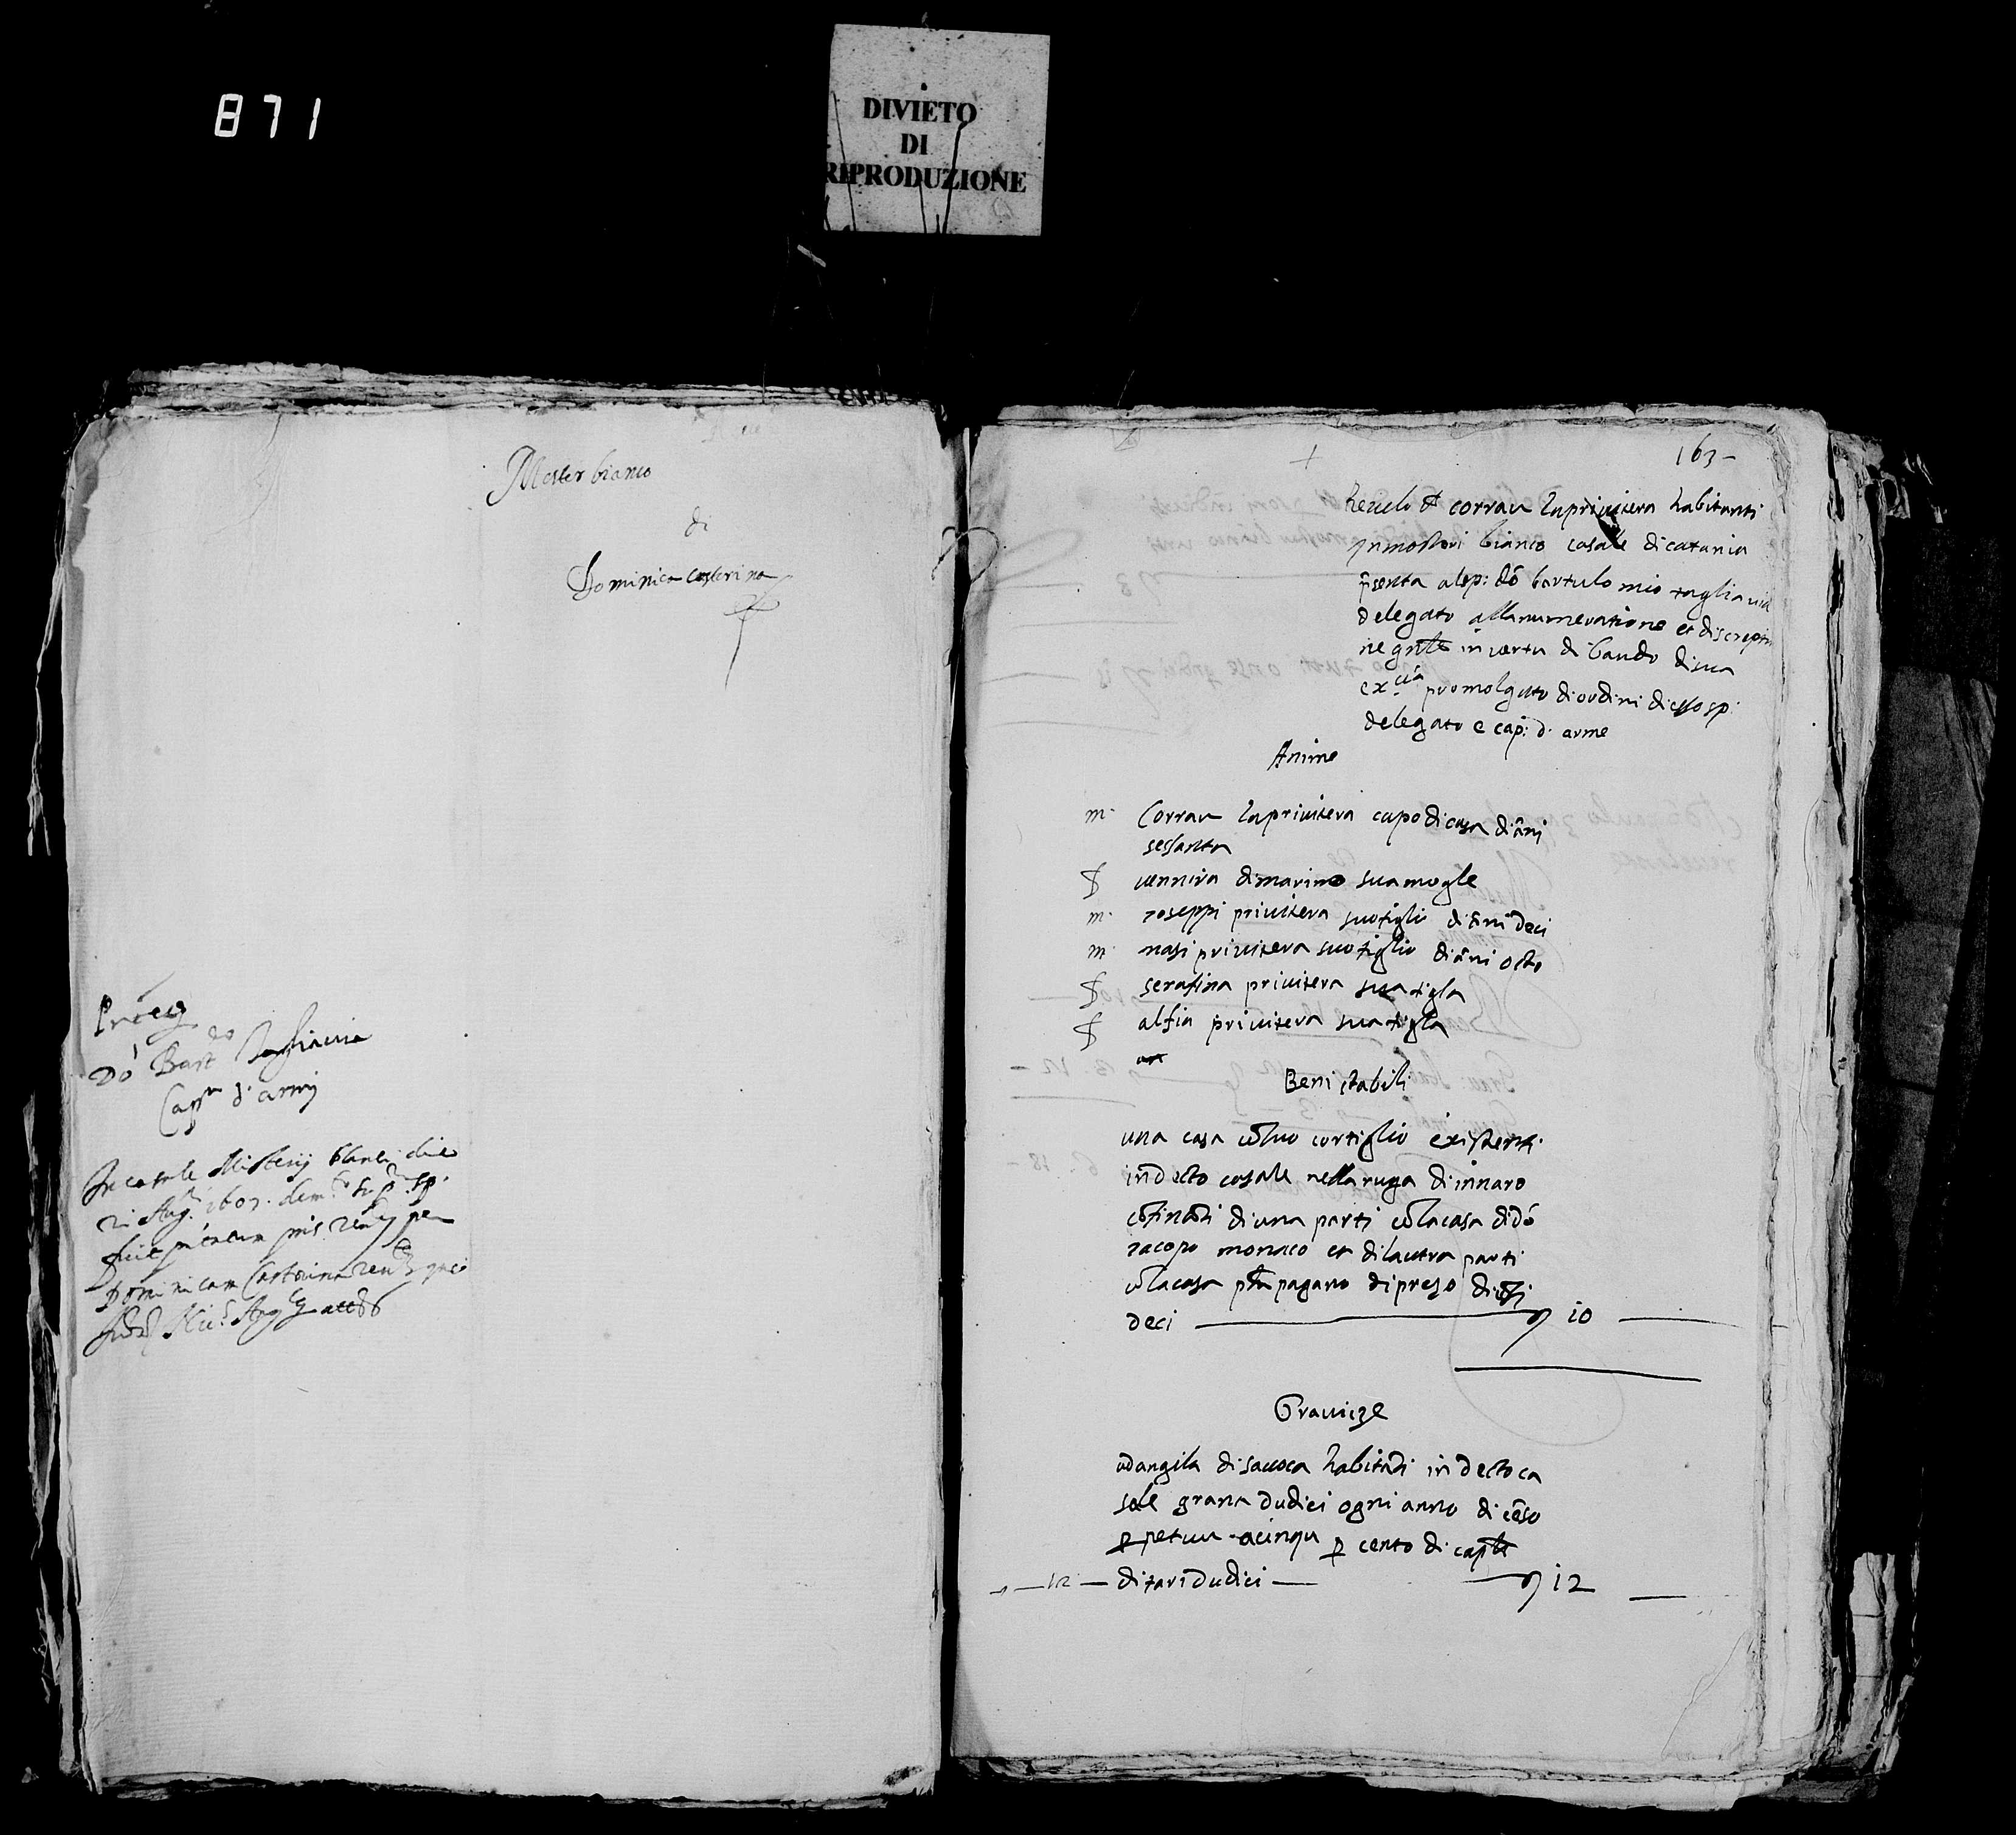 871
DIVIETO
DI
RIPRODUZIONE
Mosterbianco
di
Dominica Casterina
Dó Bart.eo Tagliavia
Cap.n d'armi
In casale Misterij blanci die
Aug. 1607.
Dominicam Castorina
163
+
Revelo d corrau laprivitera habitanti
In mosteri bianco casale di catania
p̄senta alsp: dó bartulomio tagliavia
delegato alla numeratione et discreptio
ne gn̄le in vertu di bando di sua
ex.cia promolgato di ordini di esso sp:
delegato e cap: d. arme
Anime
m. Corrau laprivitera capo di casa di ān̄i
sessanta
f vennira di marino sua mogle
m. ioseppi privitera suo figlio di ān̄i deci
m. masi privitera suo figlio di ān̄i octo
f serafina privitera sua figla
f alfia privitera sua figla
Beni stabili
una casa cō suo cortiglio existenti
in decto casale nella ruga di innaro
cōfināti di una parti cō la casa di dó
iacopo monaco et di lautra parti
cō la casa pagano di prezo di
deci 10
Gravize
ad angila di savoca habitāti in decto ca
sale grana dudici ogni anno di cēso
ppetuu a cinqu p cento di cap̄le
12 di tari dudici 12